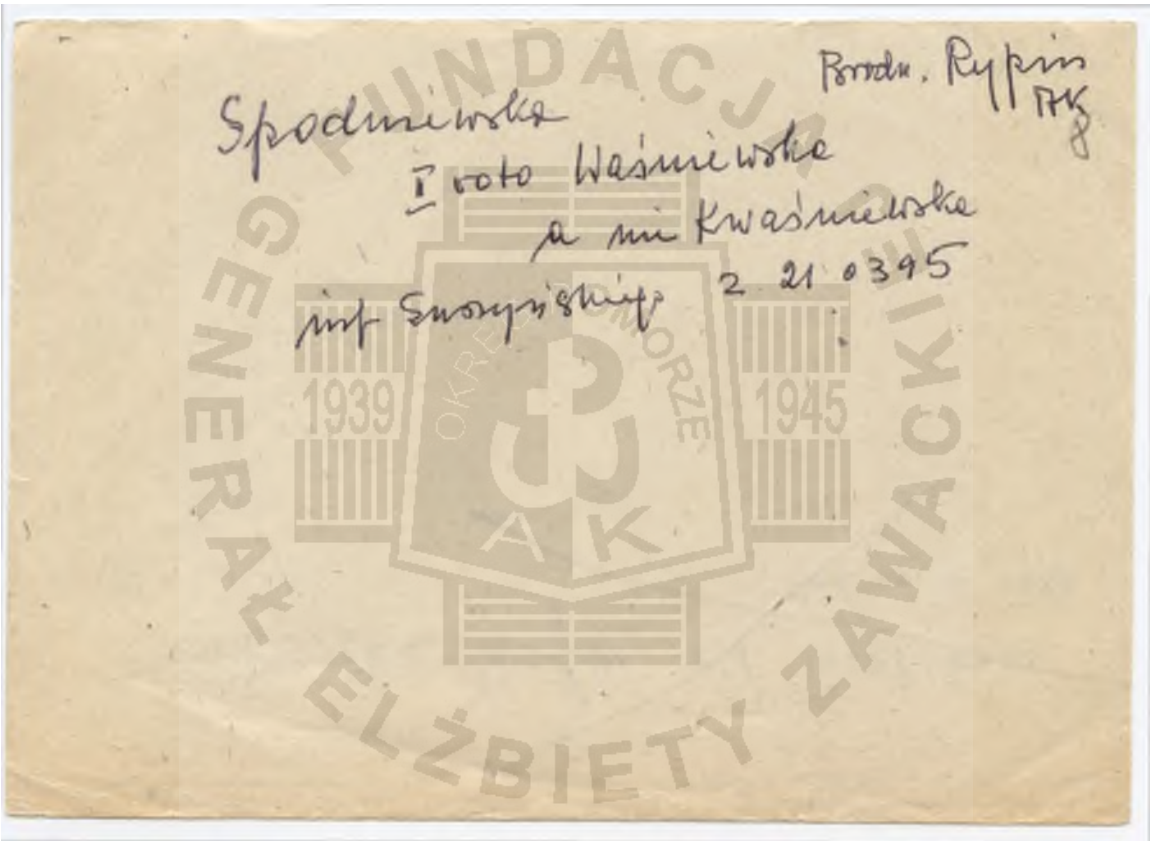 Brodn. Rypin
AK
Spodniewska
I voto Waśniewska
a nie Kwaśniewska
inf z 21 03 95
FUNDACJA GENERAŁ ELŻBIETY ZAWACKIEJ
OKRĘG POMORZE
1939 1945
A K